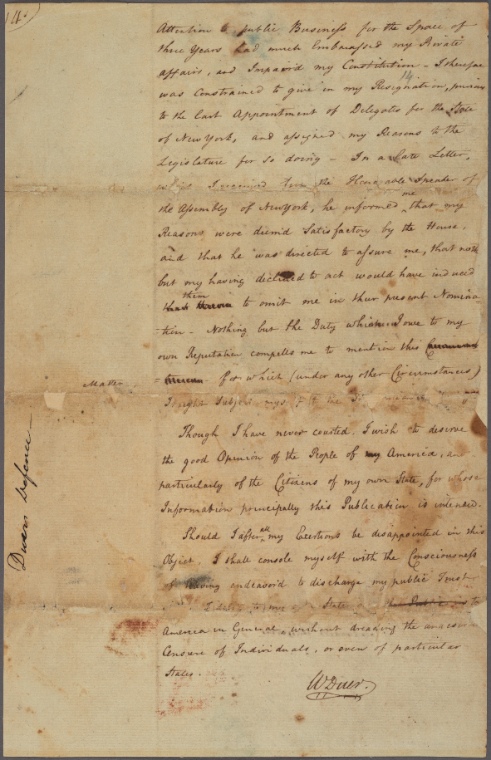 14.)
Attention to public Business for the Space of
three Years had much Embarassed my Private
affairs, and Impaired my Constitution - I therefore
14.
was constrained to give in my Resignation, previous
to the last Appointment of Delegates for the State
of New York, and assigned my Reasons to the
Legislature for so doing - In a late Letter,
I received from the Honorable Speaker of
me
the Assembly of New York, he informed that my
Reasons were deem'd Satisfactory by the House,
and that he was directed to assure me, that nothing
but my having declined to act would have induced
them
to omit me in their present Nomina
tion - Nothing but the Duty which I owe to my
own Reputation compells me to mention this
Made
for which (under any other Circumstances)
I might Subject myself to the
Though I have never courted, I wish to deserve
the good Opinion of the People of my America, and
particularly of the Citizens of my own State, for whose
Information principally this Publication is intended.
Should I after all my Exertions be disappointed in this
Object I shall console myself with the Consciousness
of having endeavor'd to discharge my public Trust
State to
America in General, without dreading the
Censure of Individuals, or even of particular
States.
WDuer.
Duers Defence